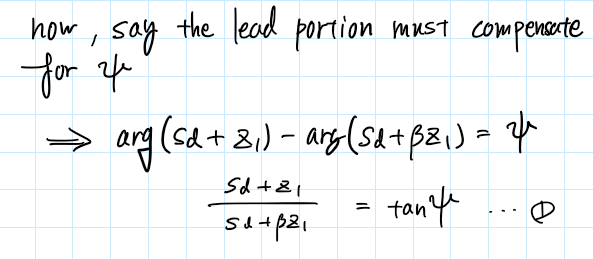 now, say the lead portion must compensate
for ψ
⇒ arg(sd + z₁) - arg(sd + βz₁) = ψ
sd + z₁
/ sd + βz₁ = tanψ ... ①